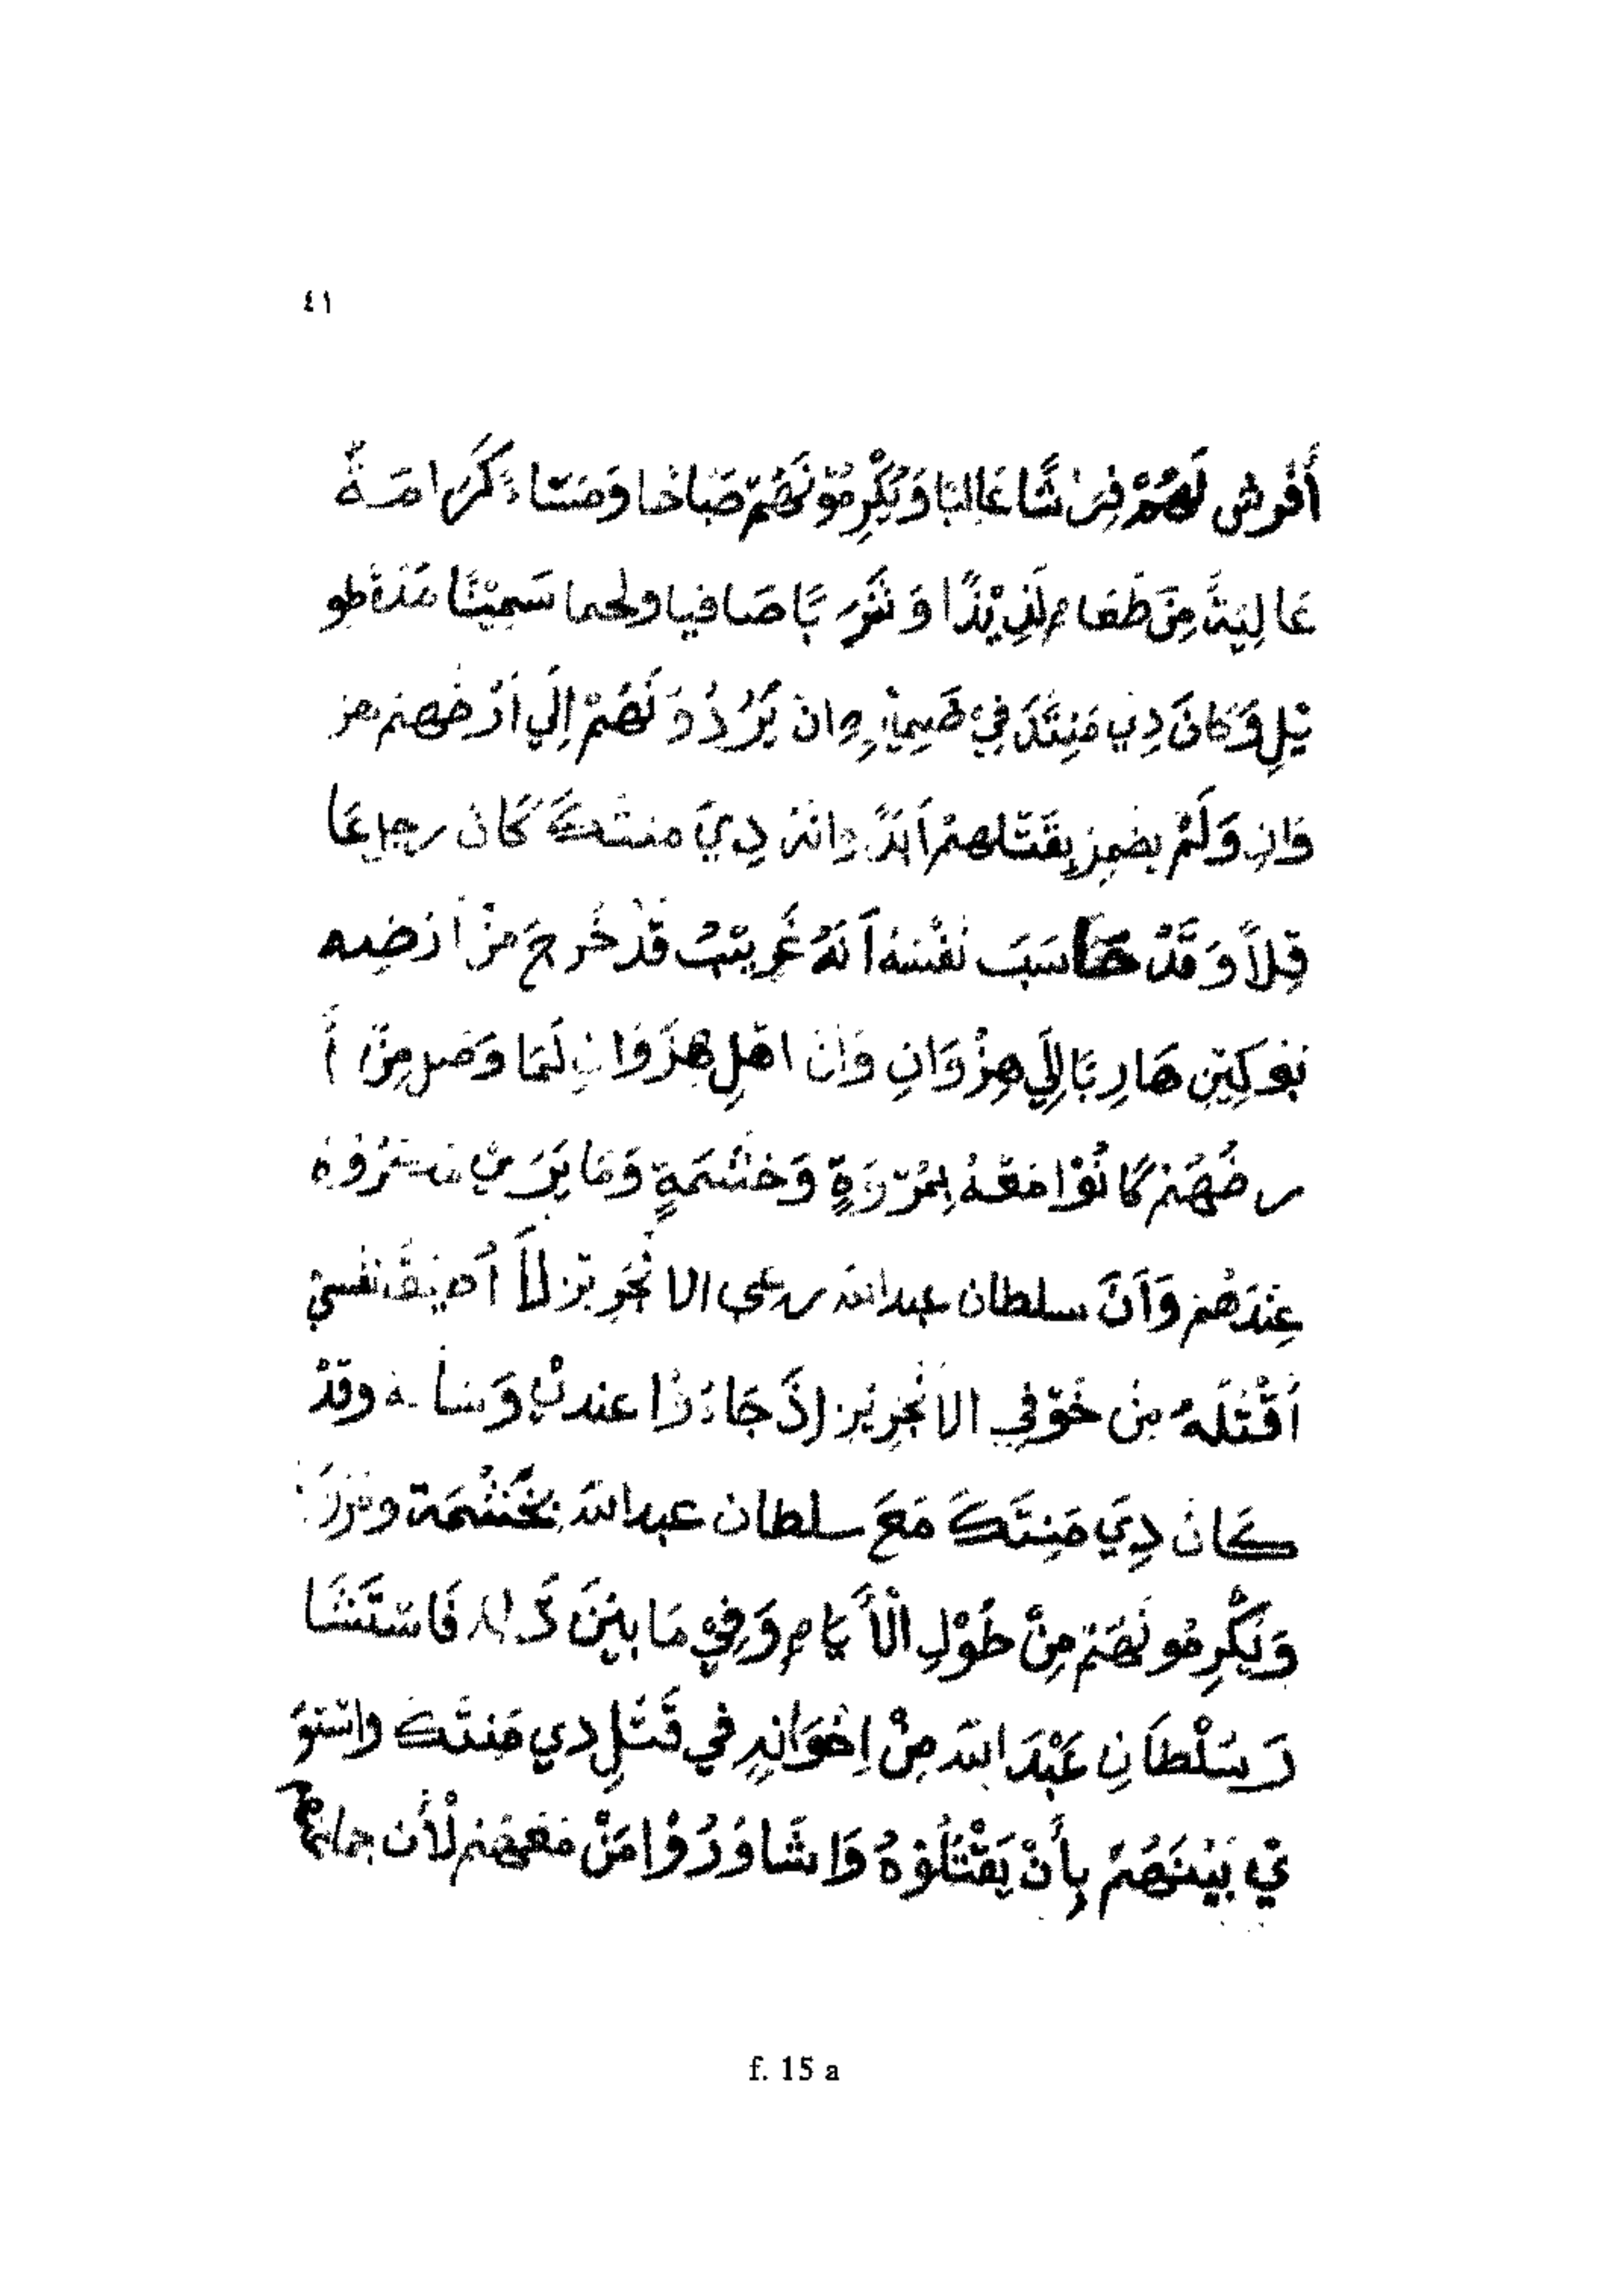 ٤١
أَفْرش لَهُمْ فِرْشًا غَالِيًا وَيُكْرِمُوْنَهُمْ صَبَاحًا وَمَسَاءً كَرَامَةً
غَالِيَةً مِنْ طَعَامٍ لَذِيْذًا وَشَرَبًا صَافيا ولحما سَمِيْنًا مُدَةً طو
يْلٍ وَكَانَ دِيْ مَنِتَكَ فِيْ ضَمِيْرِهِ ان يَرُدُوْ لَهُمْ إِلَي أَرْضهم هز
وَانِ وَلَمْ يضمِرْ بِقَتْلهمْ اَبَدًا وانهُ دِيَ منتكَ كَانَ رجلا عَا
قِلاً وَقَدْ حَاسَبَ نَفْسَهُ اَنَهُ غَرِيْبٌ قَدْ خَرجَ مِنْ اَرْضِه
بُوكِيْنِ هَارِبًا إِلَي هِزْوَانِ وَاَنَ اهْلِ هِزْوَانِ لَمَا وَصَل مِنْ أَ
رضُهُمْ كَانُوْا مَعَهُ بِمُرْرَةٍ وَحَشْمَةٍ وَمَا يَرَي
عِنْدَهُمْ وَاَنَ سلطان عبدالله رعى الانْجَرِيْز لاَ أُضِيْفَ نَفْسِيْ
أَقْتُلَهُ مِنْ خَوْفِي الانْجِرِيْزِ إِذْ جَاءُوْا عندِيْ وَسَأ له وقَدْ
كَانَ دِيَ مَنِتَكَ مَعَ سلطان عبدالله بِحَشْمَة
وَيُكْرِمُونَهُمْ مِنْ طُوْلِ الْأَيَامِ وَفِيْ مَا بَيْنَ ذَالِكَ فَاسْتَشَا
رَ سُلْطَانِ عَبْدَ الله مِنْ اِخْوَانِهِ في قَتْلِ دي مَنتَكَ واسْتَوَ
يْ بَيْنَهُمْ بِأَنْ يَقْتُلُوْهُ وَاشَاوَرُوْا مَنْ مَعَهُمْ لْأَن
f. 15 a